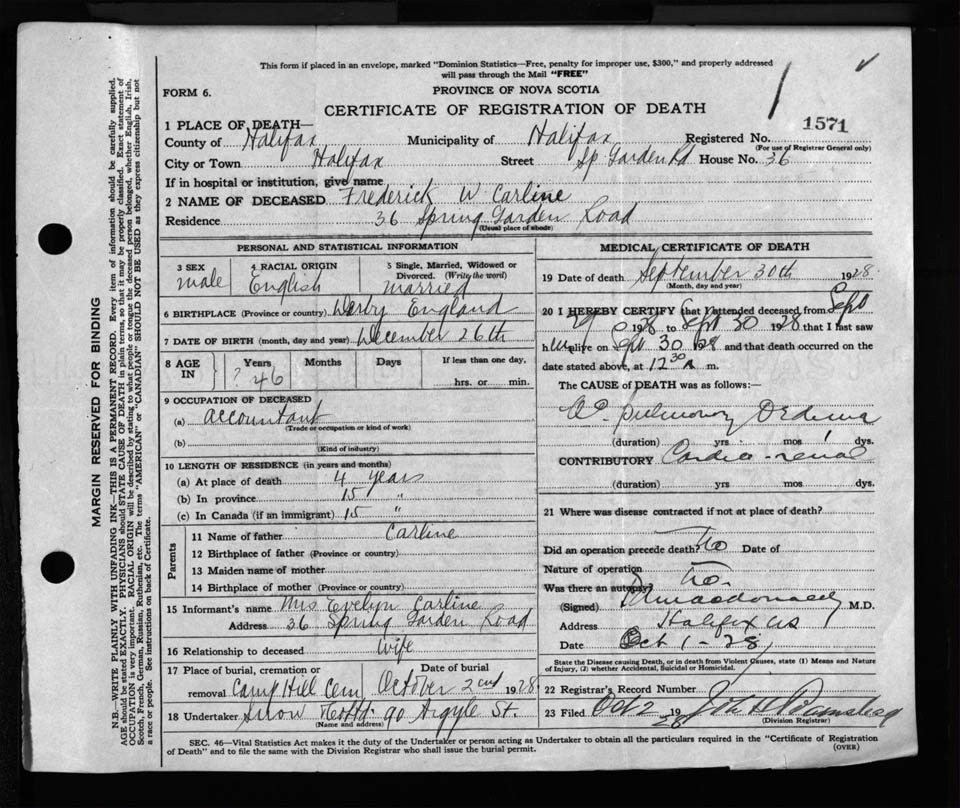 This form if placed in an envelope, marked "Dominion Statistics—Free, penalty for improper use, $300," and properly addressed
will pass through the Mail "FREE"
FORM 6.
PROVINCE OF NOVA SCOTIA
CERTIFICATE OF REGISTRATION OF DEATH
1571
1 PLACE OF DEATH—
County of Halifax Municipality of Halifax Registered No.
(For use of Registrar General only)
City or Town Halifax Street Sp Garden Rd House No. 36
If in hospital or institution, give name
2 NAME OF DECEASED Frederick W Carline
Residence 36 Spring Garden Road
(Usual place of abode)
PERSONAL AND STATISTICAL INFORMATION
3 SEX male
4 RACIAL ORIGIN English
5 Single, Married, Widowed or
Divorced. (Write the word)
married
6 BIRTHPLACE (Province or country) Derby England
7 DATE OF BIRTH (month, day and year) December 26th
8 AGE IN Years Months Days If less than one day,
? 46 hrs. or min.
9 OCCUPATION OF DECEASED
(a) accountant
(Trade or occupation or kind of work)
(b)
(Kind of industry)
10 LENGTH OF RESIDENCE (in years and months)
(a) At place of death 4 years
(b) In province 15 "
(c) In Canada (if an immigrant) 15 "
Parents
11 Name of father Carline
12 Birthplace of father (Province or country)
13 Maiden name of mother
14 Birthplace of mother (Province or country)
15 Informant's name Mrs Evelyn Carline
Address 36 Spring Garden Road
16 Relationship to deceased wife
17 Place of burial, cremation or
removal Camp Hill Cem
Date of burial
October 2nd 1928
18 Undertaker Snow 90 Argyle St.
(Name and address)
MEDICAL CERTIFICATE OF DEATH
19 Date of death September 30th 1928
(Month, day and year)
20 I HEREBY CERTIFY that I attended deceased from Sept
29 1928 to Sept 30 1928 that I last saw
him alive on Spt 30 1928 and that death occurred on the
date stated above, at 12 30 A m.
The CAUSE of DEATH was as follows:
Ac pulmonary Oedema
(duration) yrs mos 1 dys.
CONTRIBUTORY Cardio-renal
(duration) yrs mos dys.
21 Where was disease contracted if not at place of death?
Did an operation precede death? No Date of
Nature of operation
Was there an autopsy No.
(Signed) Macdonald M.D.
Address Halifax NS
Date Oct 1-28
State the Disease causing Death, or in death from Violent Causes, state (1) Means and Nature
of Injury, (2) whether Accidental, Suicidal or Homicidal.
22 Registrar's Record Number
23 Filed Oct 2 1928 John
(Division Registrar)
SEC. 46—Vital Statistics Act makes it the duty of the Undertaker or person acting as Undertaker to obtain all the particulars required in the "Certificate of Registration
of Death" and to file the same with the Division Registrar who shall issue the burial permit.
(OVER)
MARGIN RESERVED FOR BINDING
N.B.—WRITE PLAINLY WITH UNFADING INK—THIS IS A PERMANENT RECORD. Every item of information should be carefully supplied.
AGE should be stated EXACTLY. PHYSICIANS should STATE CAUSE OF DEATH in plain terms, so that it may be properly classified. Exact statement of
OCCUPATION is very important. RACIAL ORIGIN will be described by stating to what people or race the deceased person belonged, whether English, Irish,
Scotch, French, German, Russian, Ruthenian, etc. The terms "AMERICAN" or "CANADIAN" SHOULD NOT BE USED as they express citizenship but not
a race or people. See instructions on back of Certificate.